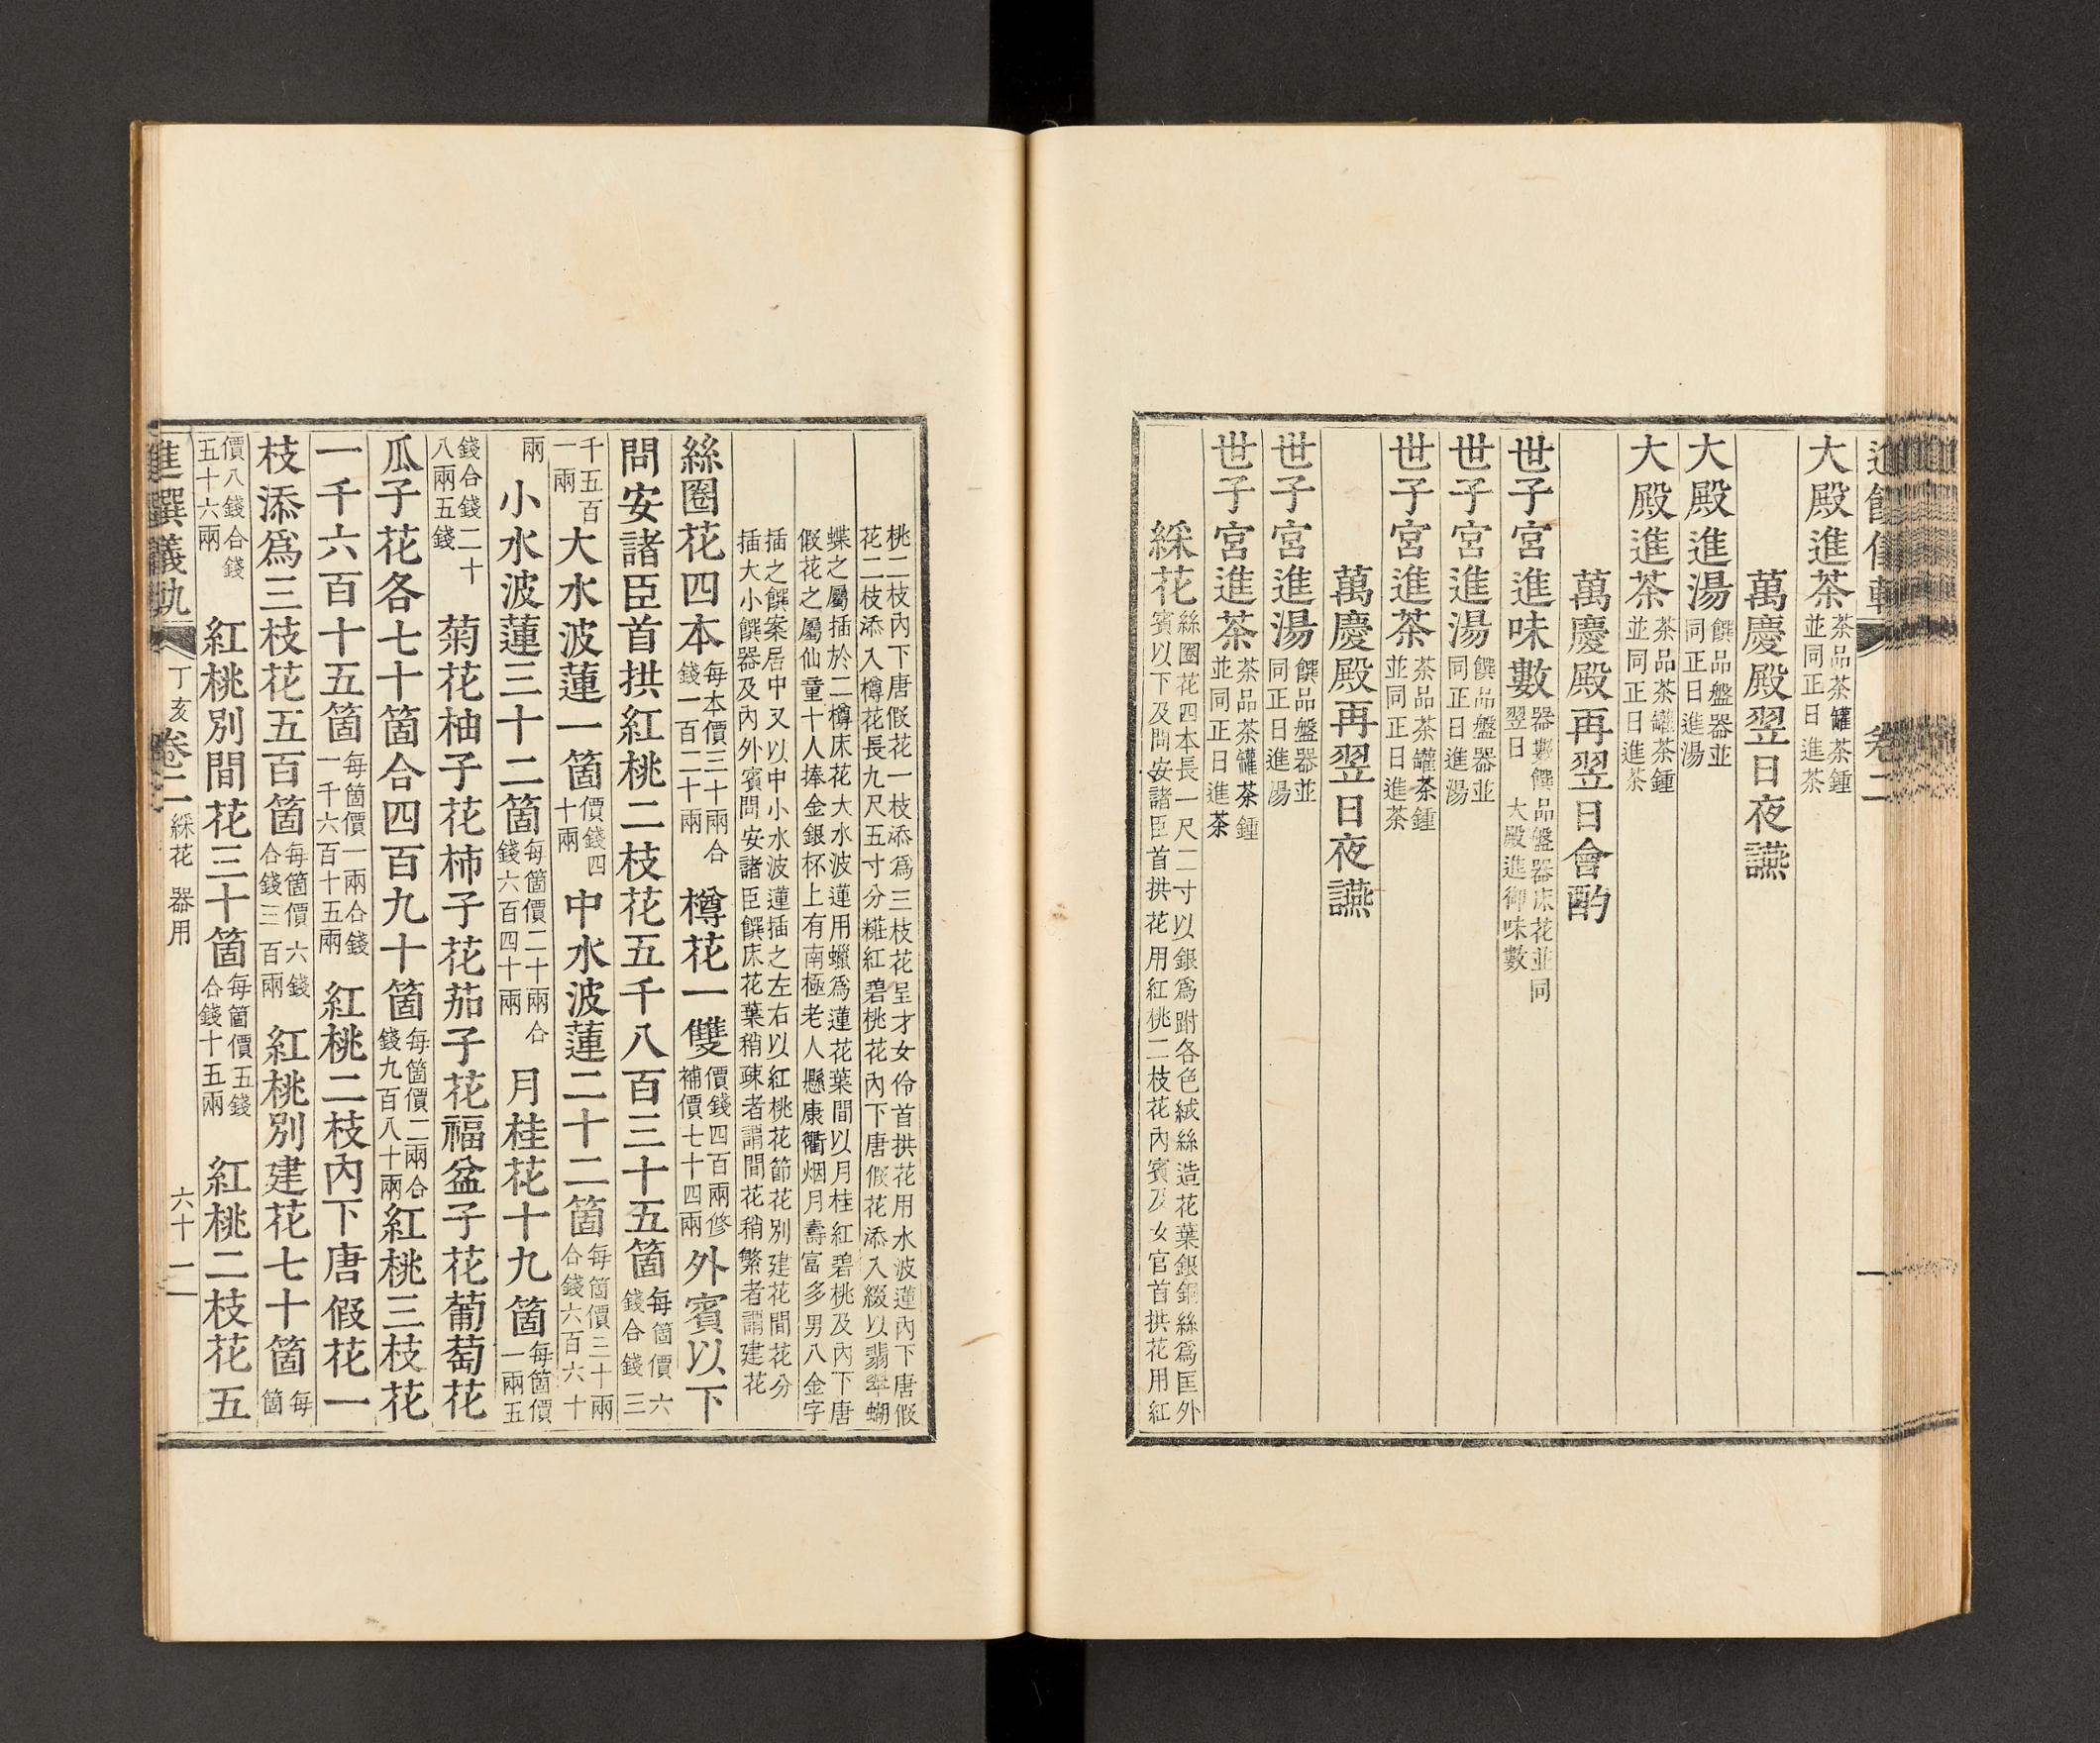 進饌儀軌 卷二
大殿進茶茶品茶罐茶鍾並同正日進茶
萬慶殿翌日夜讌
大殿進湯饌品盤器並同正日進湯
大殿進茶茶品茶罐茶鍾並同正日進茶
萬慶殿再翌日會酌
世子宮進味數器數饌品盤器床花並同翌日 大殿進御味數
世子宮進湯饌品盤器並同正日進湯
世子宮進茶茶品茶罐茶鍾並同正日進茶
萬慶殿再翌日夜讌
世子宮進湯饌品盤器並同正日進湯
世子宮進茶茶品茶罐茶鍾並同正日進茶
綵花絲圈花四本長一尺二寸以銀爲跗各色絨絲造花葉銀銅絲爲匡外賓以下及問安諸臣首拱花用紅桃二枝花內賓及女官首拱花用紅
桃二枝內下唐假花一枝添爲三枝花呈才女伶首拱花用水波蓮內下唐假花二枝添入樽花長九尺五寸分糚紅碧桃花內下唐假花添入綴以翡翠蝴
蝶之屬插於二樽床花大水波蓮用蠟爲蓮花葉間以月桂紅碧桃及內下唐假花之屬仙童十人捧金銀杯上有南極老人懸康衢烟月壽富多男八金字
插之饌案居中又以中小水波蓮插之左右以紅桃花節花別建花間花分插大小饌器及內外賓問安諸臣饌床花葉稍疎者謂間花稍繁者謂建花
絲圈花四本每本價三十兩合錢一百二十兩 樽花一雙價錢四百兩修補價七十四兩外賓以下
問安諸臣首拱紅桃二枝花五千八百三十五箇每箇價六錢合錢三
千五百一兩大水波蓮一箇價錢四十兩 中水波蓮二十二箇每箇價三十兩合錢六百六十
兩 小水波蓮三十二箇每箇價二十兩合錢六百四十兩 月桂花十九箇每箇價一兩五
錢合錢二十八兩五錢 菊花柚子花柿子花茄子花福盆子花葡萄花
瓜子花各七十箇合四百九十箇每箇價二兩合錢九百八十兩紅桃三枝花
一千六百十五箇每箇價一兩合錢一千六百十五兩 紅桃二枝內下唐假花一
枝添爲三枝花五百箇每箇價六錢合錢三百兩 紅桃別建花七十箇每箇
價八錢合錢五十六兩 紅桃別間花三十箇每箇價五錢合錢十五兩 紅桃二枝花五
進饌儀軌 丁亥 卷二 綵花 器用 六十二